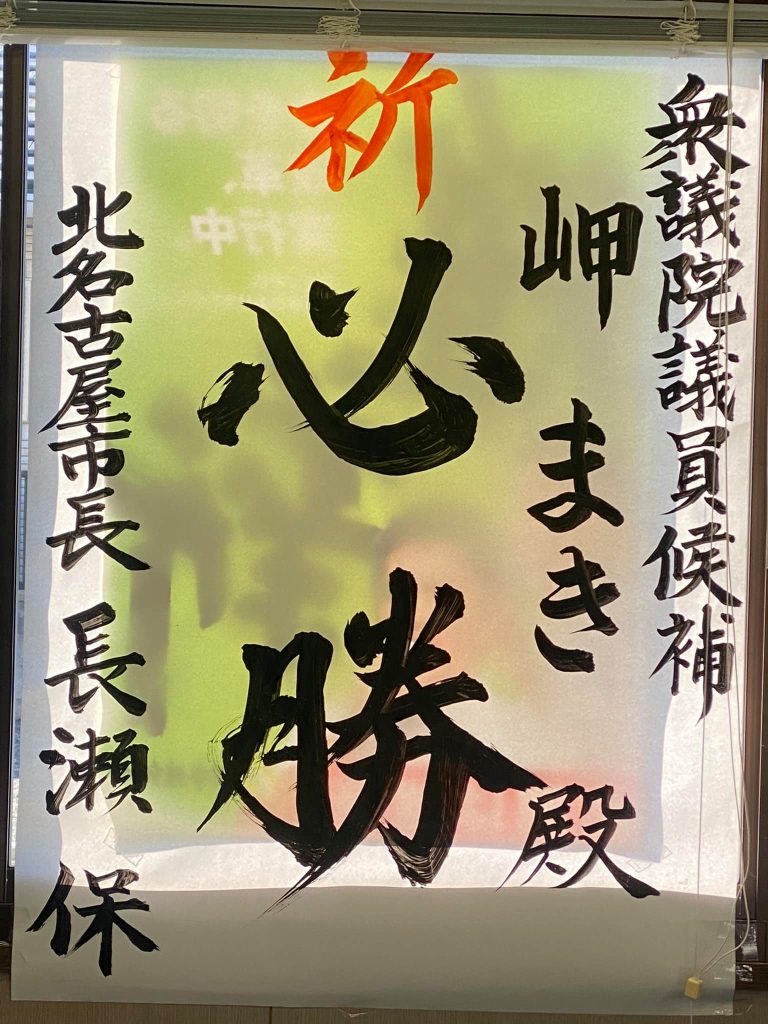 衆議院議員候補
岬まき殿
祈
必勝
北名古屋市長 長瀬保